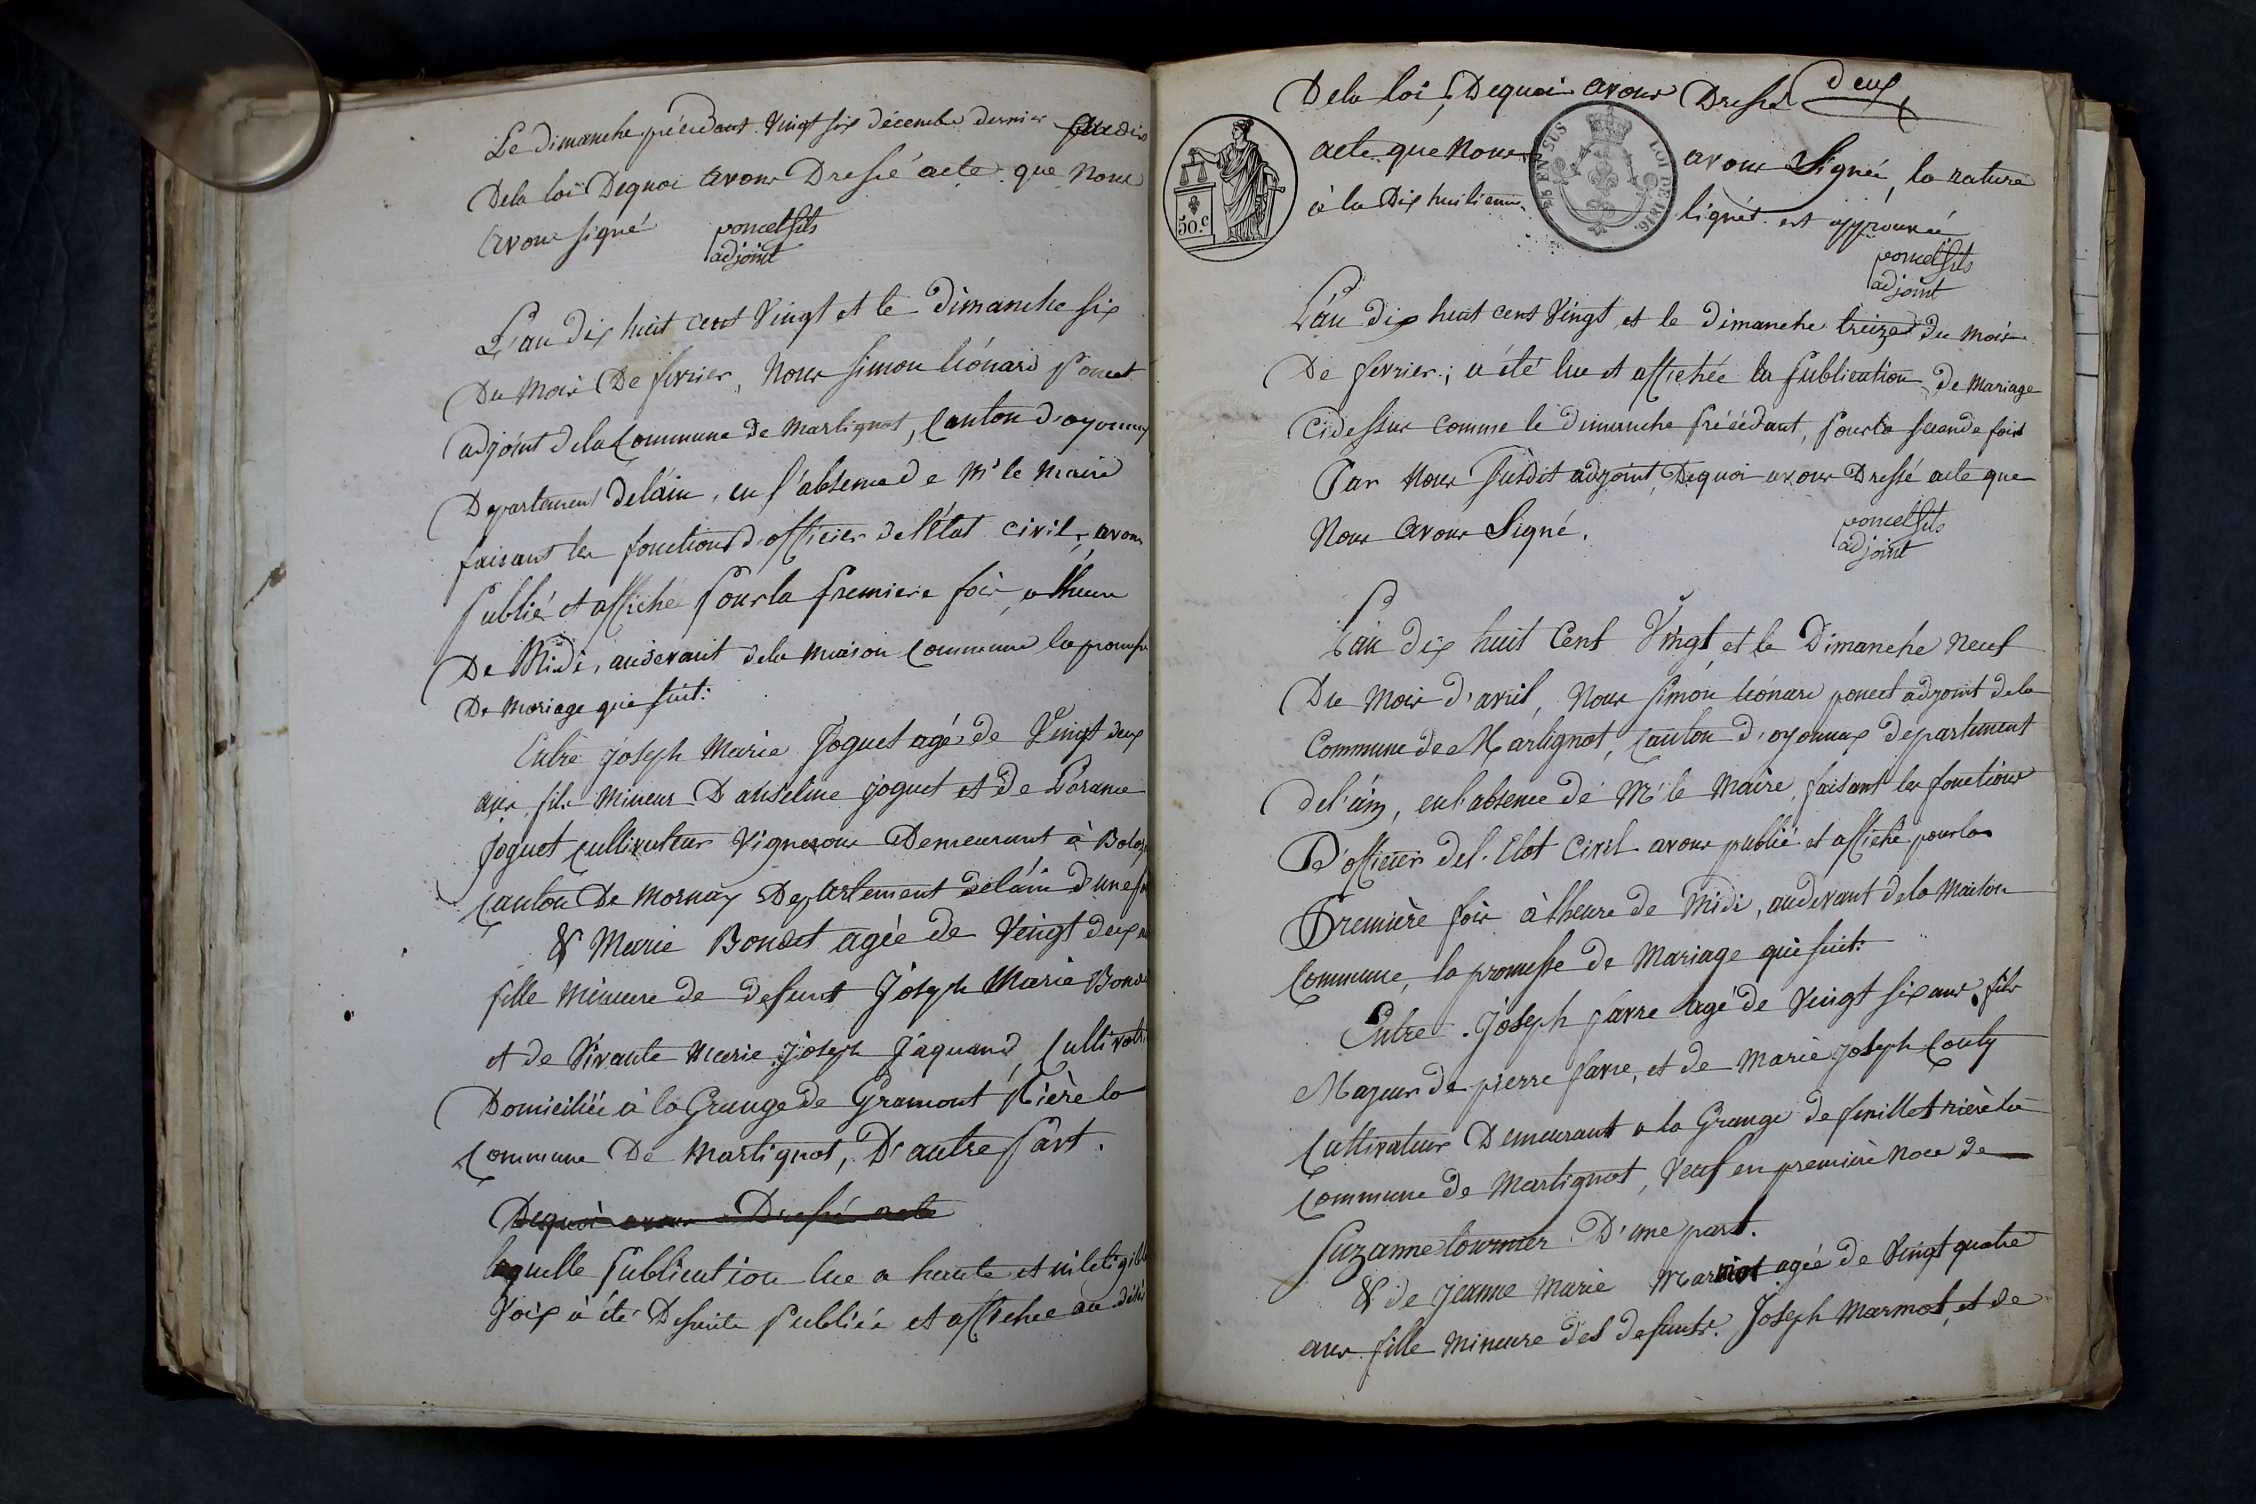 Le dimanche précédant vingt six décembre dernier
De la loi Dequoi avons Dressé acte que Nous
avons signé poncet fils
adjoint
L'an dix huit cent Vingt et le dimanche six
Du Mois De fevrier, Nous Simon Léonard Poncet
adjoint de la Commune de Martignat, Canton d'oyonnax
Departement de l'ain, en l'absence de Mr le Maire
faisant les fonctions d'officier de l'état civil, avons
Publié et affiché Pour la Premiere fois, a l'heure
De Midi, audevant de la maison Commune la promesse
De Mariage qui suit:
Entre joseph Marie Joguet agé de Vingt deux
ans, fils Mineur D'anselme joguet et de
Joguet Cultivateur Vigneron Demeurant à
Canton De Mornay Departement de l'ain d'une part
& Marie Bondet agée de Vingt deux ans
fille Mineure de defunt Joseph Marie Bondet
et de Vivante Marie Joseph Jaquand, Cultivatrice
Domiciliée à la Grange de Gramont Rière la
Commune De Martignat, D'autre Part.
Dequoi avons Dressé acte
laquelle Publication lue a haute et inteligible
Voix à été Desuite Publiée et affichée au désir
De la loi, Dequoi avons Dressé deux
acte que Nous avons Signé, la rature
à la Dix huitieme ligne est approuvée
poncet fils
adjoint
50. C.
EN SUS
LOI DE 1816.
L'an dix huit cent Vingt, et le dimanche treize du mois
De fevrier; a été lue et affichée la Publication de Mariage
Cidessus comme le dimanche Précédant, pour la seconde fois
Par Nous Susdit adjoint, Dequoi avons Dressé acte que
Nous avons Signé.
poncet fils
adjoint
L'an dix huit Cent Vingt, et le Dimanche Neuf
Du Mois d'avril, Nous Simon Léonard poncet adjoint de la
Commune de Martignat, Canton d'oyonnax département
de l'ain, en l'absence de Mr le Maire, faisant les fonctions
D'officier de l'Etat Civil avons publié et affiché pour la
Première fois à l'heure de Midi, audevant de la Maison
Commune, la promesse de Mariage qui suit:
Entre Joseph favre agé de Vingt six ans, fils
Majeur de pierre favre, et de Marie Joseph Couly
Cultivateur Demeurant a la Grange de fenillet rière la
Commune de Martignat, Veuf en première Noce de
Suzanne tournier D'une part.
& de Jeanne Marie Marmot agée de Vingt quatre
ans fille Mineure des defunts Joseph Marmot, et de